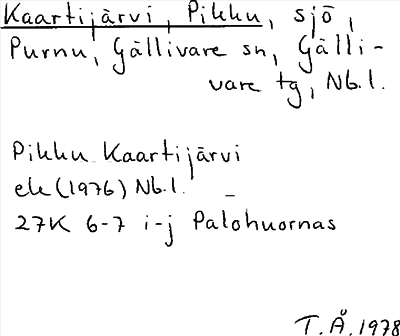 Kaartijärvi, Pikku, sjö,
Purnu, Gällivare sn, Gälli-
vare tg, Nb.l.
Pikku Kaartijärvi
ek (1976) Nb.l. –
27K 6-7 i-j Palohuornas
T.Å. 1978